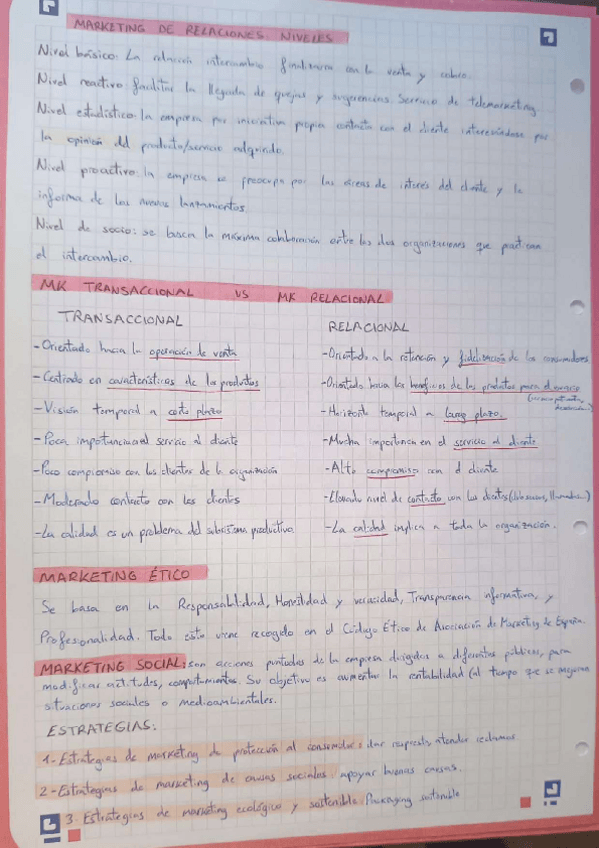 MARKETING DE RELACIONES NIVELES
Nivel básico: La relación intercambio finalizaria con la venta y cobro.
Nivel reactivo facilitar la llegada de quejas y sugerencias. Servicio de telemarketing.
Nivel estadístico: la empresa por iniciativa propia contacta con el cliente interesándose por
la opinión del producto/servicio adquirido.
Nivel proactivo: la empresa se preocupa por las áreas de interés del cliente y le
informa de los nuevos lanzamientos.
Nivel de socio: se busca la máxima colaboración entre las dos organizaciones que practican
el intercambio.
MK TRANSACCIONAL VS MK RELACIONAL
TRANSACCIONAL
RELACIONAL
-Orientado hacia la operación de venta
-Orientado a la retención y fidelización de los consumidores
-Centrado en características de los productos
-Orientado hacia los beneficios de los productos para el
-Visión temporal a corto plazo
-Horizonte temporal a largo plazo.
-Poca importancia al servicio al cliente
-Mucha importancia en el servicio al cliente
-Poco compromiso con los clientes de la organización
-Alto compromiso con el cliente
-Moderado contacto con los clientes
-Elevado nivel de contacto con los clientes
-La calidad es un problema del subsistema productivo.
-La calidad implica a toda la organización.
MARKETING ÉTICO
Se basa en la Responsabilidad, Honestidad y veracidad, Transparencia informativa, y
Profesionalidad. Todo esto viene recogido en el Código Ético de Asociación de Marketing de España.
MARKETING SOCIAL: son acciones puntuales de la empresa dirigidas a diferentes públicos, para
modificar actitudes, comportamientos. Su objetivo es aumentar la rentabilidad (al tiempo que se mejoran
situaciones sociales o medioambientales.
ESTRATEGIAS:
1-Estrategias de marketing de protección al consumidor: dar respuesta, atender reclamos
2-Estrategias de marketing de causas sociales: apoyar buenas causas.
3. Estrategias de marketing ecológico y sostenible: Packaging sostenible